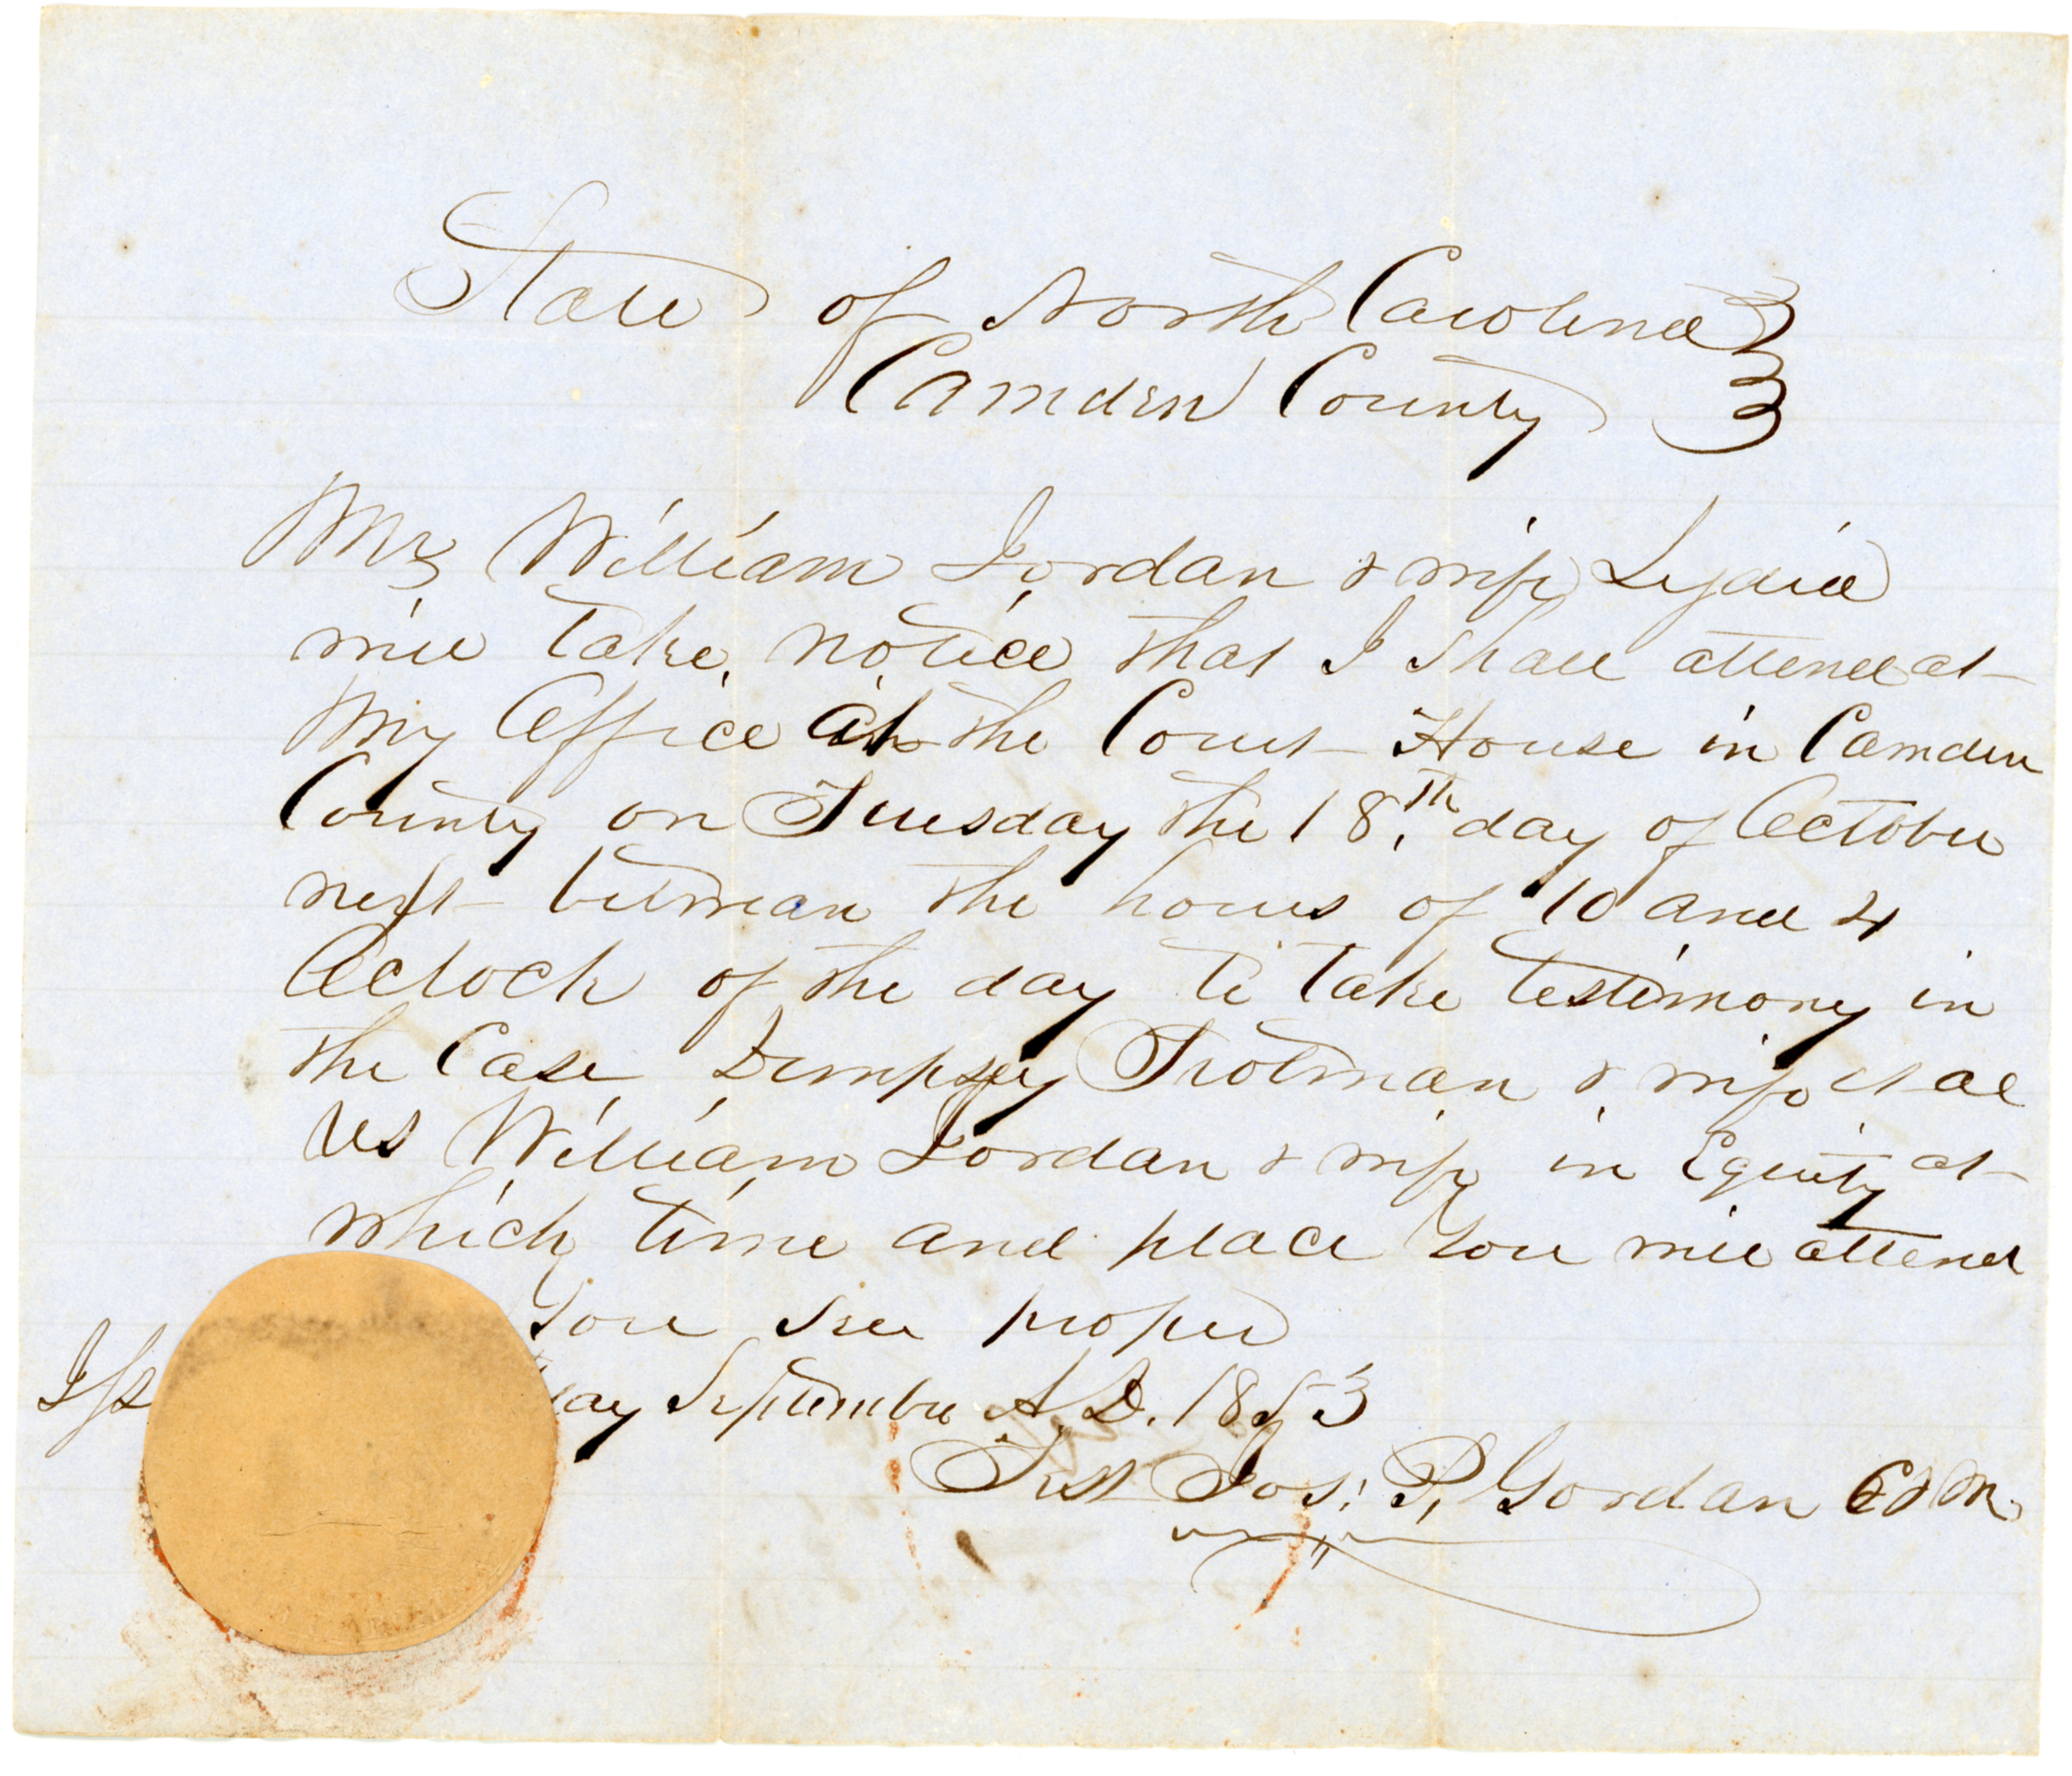 State of North Carolina
Camden County
Mr William Jordan & wife Lydia
will take notice that I shall attend at
my Office at the Court House in Camden
County on Tuesday the 18th day of October
next between the hours of 10 and 4
Oclock of the day to take testimony in
the Case Dempsey Trotman & wife et al
vs William Jordan & wife in Equity at
which time and place you will attend
you see proper
Iss
day September A D. 1853
Test Jos: P. Gordan C & M.